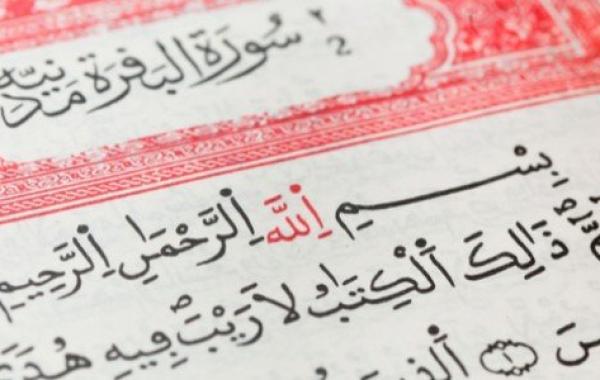 ٢ سُورَةُ البَقَرَةِ مَدَنِيَّة
2
بِسْمِ اِللَّهِ اِلرَّحْمَٰنِ اِلرَّحِيمِ
ذَٰلِكَ اَلْكِتَٰبُ لَا رَيْبَ فِيهِ هُدىٗ